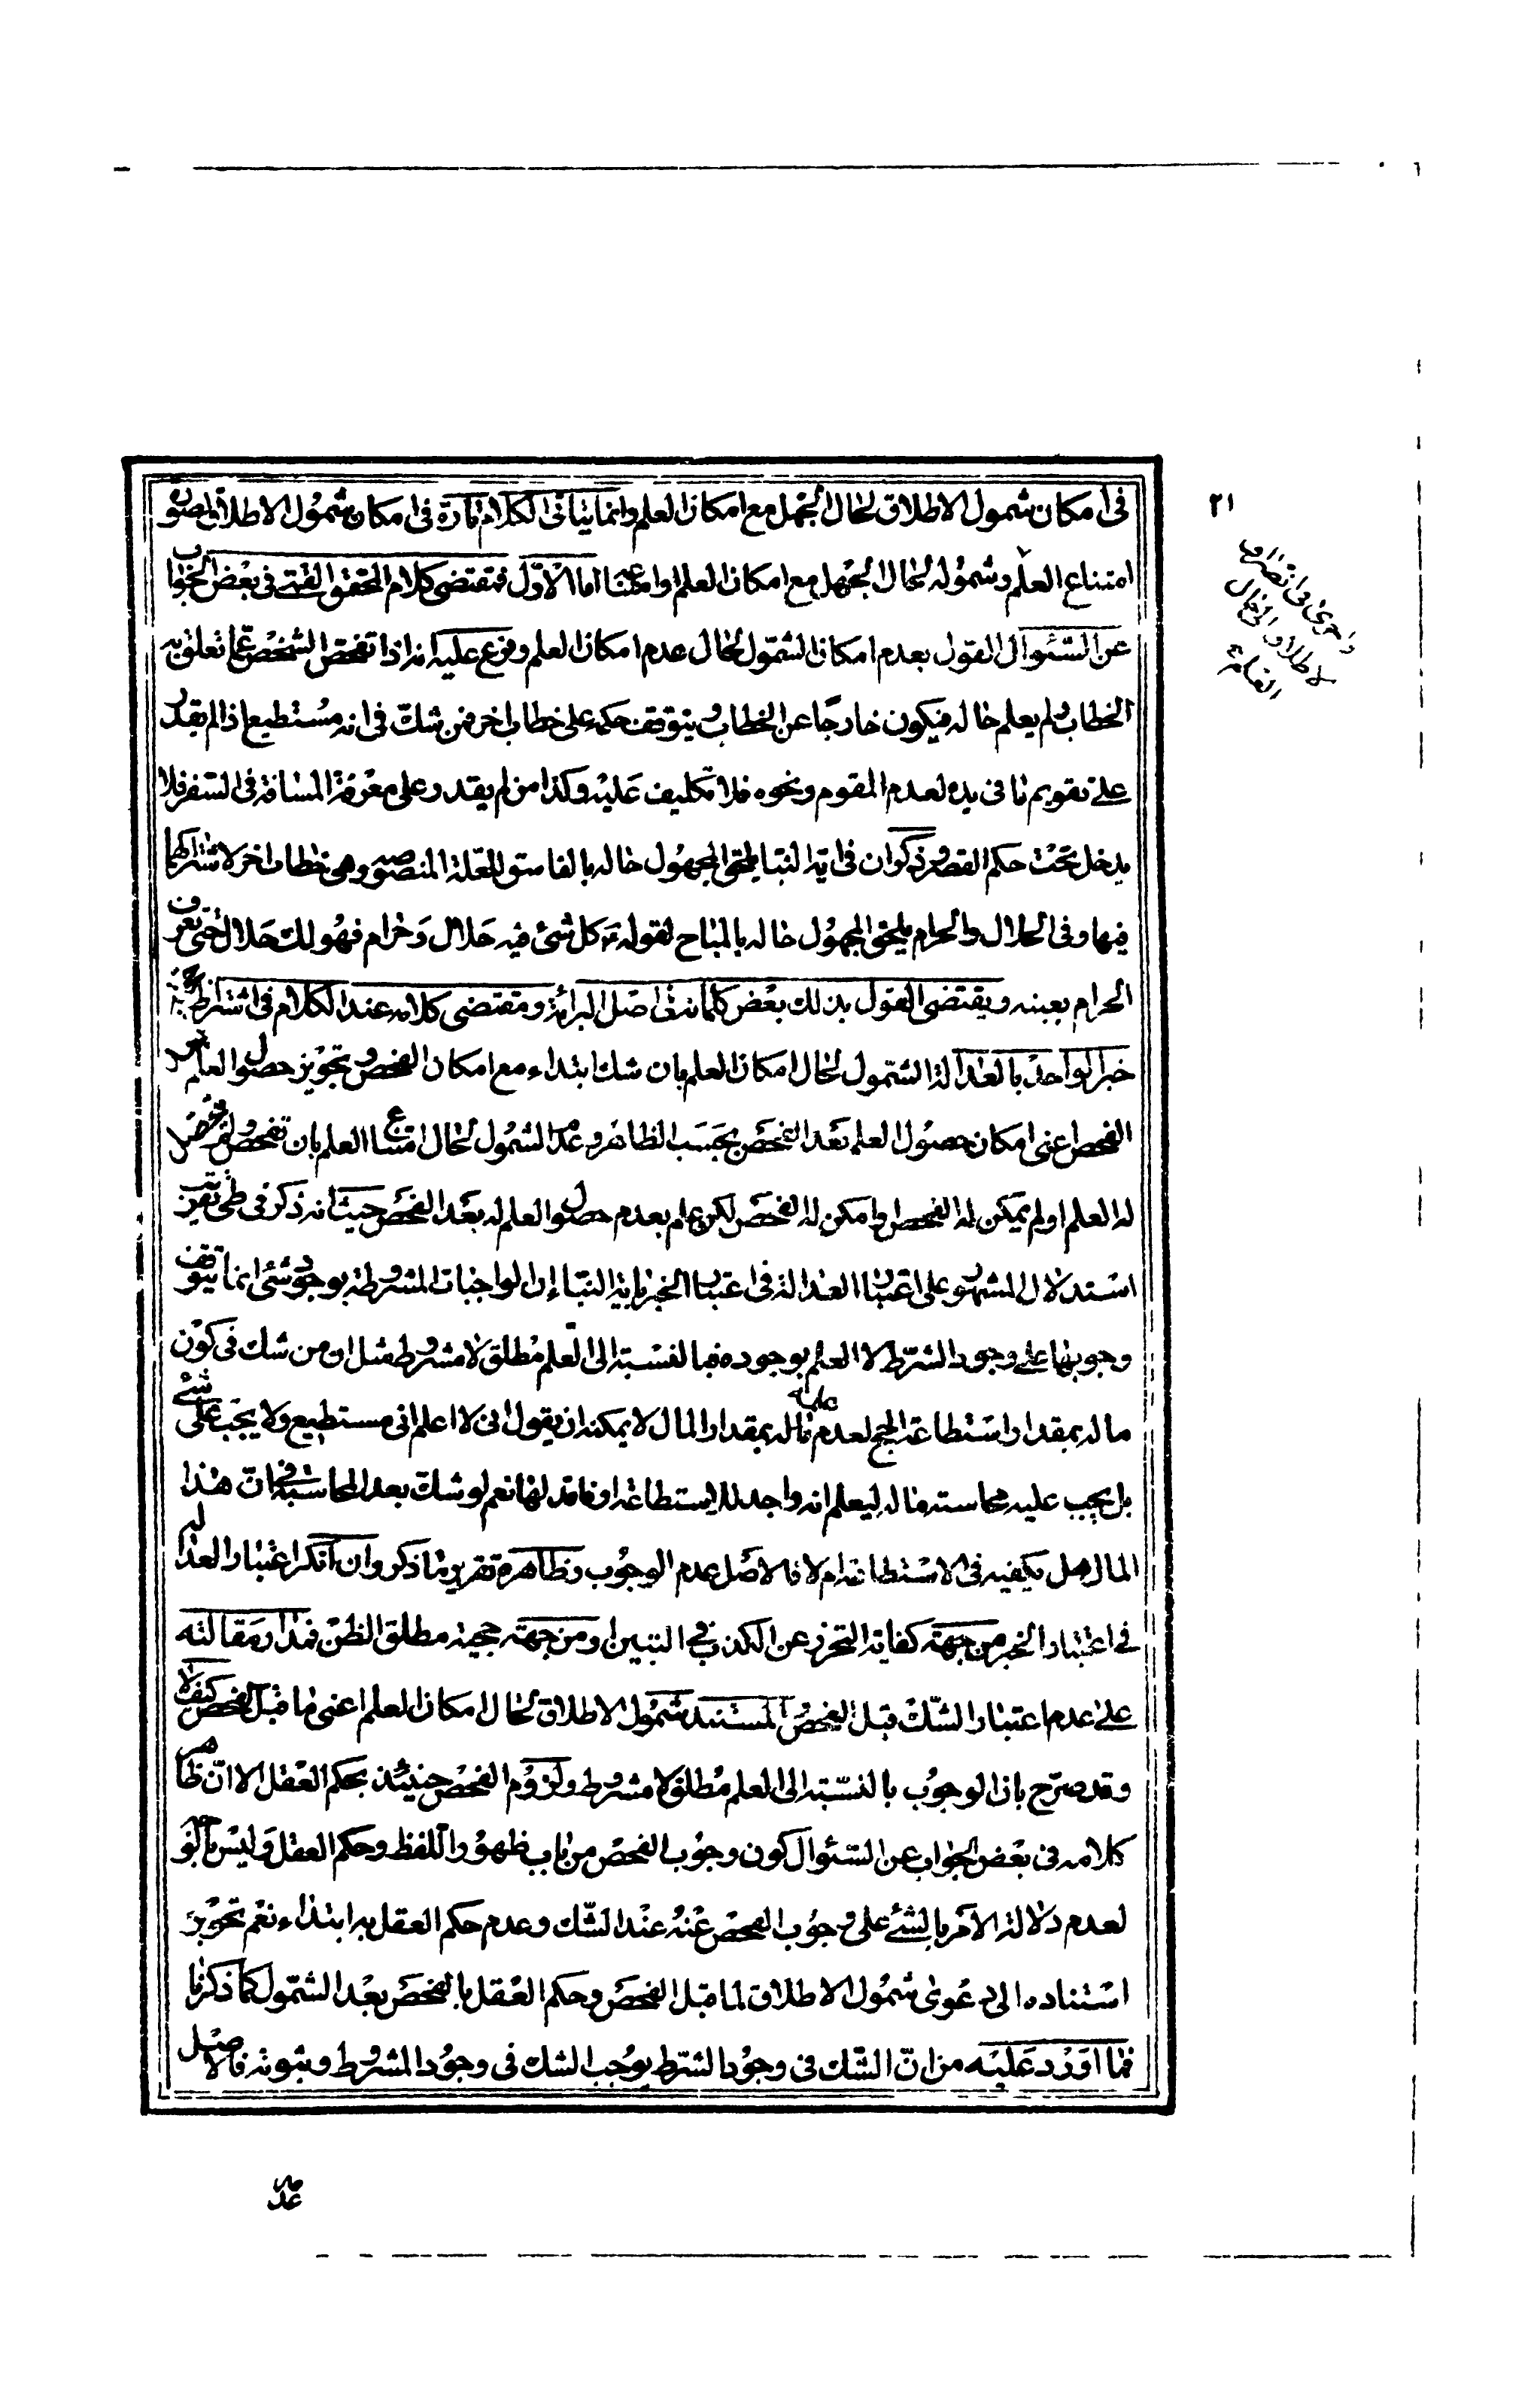 ٢١
في امكان شمول الاطلاق لحال الجهل مع امكان العلم وانما يتاتى الكلام تارة في امكان شمول الاطلاق لصورة
امتناع العلم وشموله لحال الجهل مع امكان العلم او امتناعه اما الاوّل فمقتضى كلام المحقق القمّي في بعض الجواب
عن السّئوال القول بعدم امكان الشمول لحال عدم امكان العلم وفرع عليه انه اذا تفحّص الشخص عمّا تعلق به
الخطاب ولم يعلم حاله فيكون خارجًا عن الخطاب ويتوقف حكمه على خطاب اخر فمن شكّ في انه مُستطيع اذا لم يقدر
على تقويم ما في يده لعدم المقوم ونحوه فلا تكليف عليه وكذا من لم يقدر على معرفة المسافة في السّفر فلا
يدخل تحت حكم القصر وذكر ان في اية النبا يلحق المجهول حاله بالفاسق للعلّة المنصوصة وهى خطاب اخر لاشتراكها
فيها وفي الحلال والحرام يلحق المجهول حاله بالمباح لقوله ع كل شئ فيه حَلال وَحرام فهُو لك حَلال حتى تعرف
الحرام بعينه ويقتضى القول بذلك بعض كلماته في اصَل البرائة ومقتضى كلامه عند الكلام في اشتراط حجية
خبر الواحد بالعدالة الشمول لحال امكان العلم بان شك ابتداء مع امكان الفحص وتجويز حصول العلم بعد
الفحص اعنى امكان حصول العلم بعد الفحص بحسب الظاهر وعدم الشمول لحال امتناع العلم بان تفحص ولم يحصل
له العلم او لم يمكن له الفحص او امكن له الفحص لكن علم بعدم حصول العلم له بعد الفحص حيث انه ذكر في طى تقريب
استدلال المشهور على اعتبار العدالة في اعتبار الخبر باية النبأ ان الواجبات المشروطة بوجود شئ انما يتوقف
وجوبها على وجود الشرط لا العلم بوجوده فبالنسبة الى العلم مُطلق لا مشروط مثل ان من شك في كون
ماله بمقدار استطاعة الحج لعدم علمه بمقدار المال لا يمكنه ان يقول انى لا اعلم انى مستطيع ولا يجب علىّ شئ
بل يجب عليه محاسبة ماله ليعلم انه واجد للاستطاعة او فاقد لها نعم لو شكّ بعد المحاسبة في انّ هذا
المال هل يكفيه في الاستطاعة ام لا فالاصَل عدم الوجُوب وظاهره تقرير ما ذكر وان انكر اعتبار العدالة
في اعتبار الخبر من جهة كفاية التحرز عن الكذب في التبين او من جهة حجية مطلق الظنّ فمدار مقالته
على عدم اعتبار الشّك قبل الفحص المستند شمول الاطلاق لحال امكان العلم اعنى ما قبل الفحص
وقد صرّح بان الوجُوب بالنسّبة الى العلم مُطلق لا مشروط ولزوُم الفحص حينئذ بحكم العقل الا انّ ظاهر
كلامه في بعض الجواب عن السّئوال كون وجُوب الفحص من باب ظهوُر اللفظ وحكم العقل وَليس بالوجه
لعدم دلالة الامر بالشئ على وجُوب الفحص عنه عند الشّك وعدم حكم العقل به ابتداء نعم تجوّيز
استناده الى دعوى شمُول الاطلاق لما قبل الفحص وحكم العقل بالفحص بعد الشمّول كما ذكرنا
فما اوُرد عليه من انّ الشّك في وجود الشرط يوجب الشك في وجوُد المشروط وثبوته فالاصل